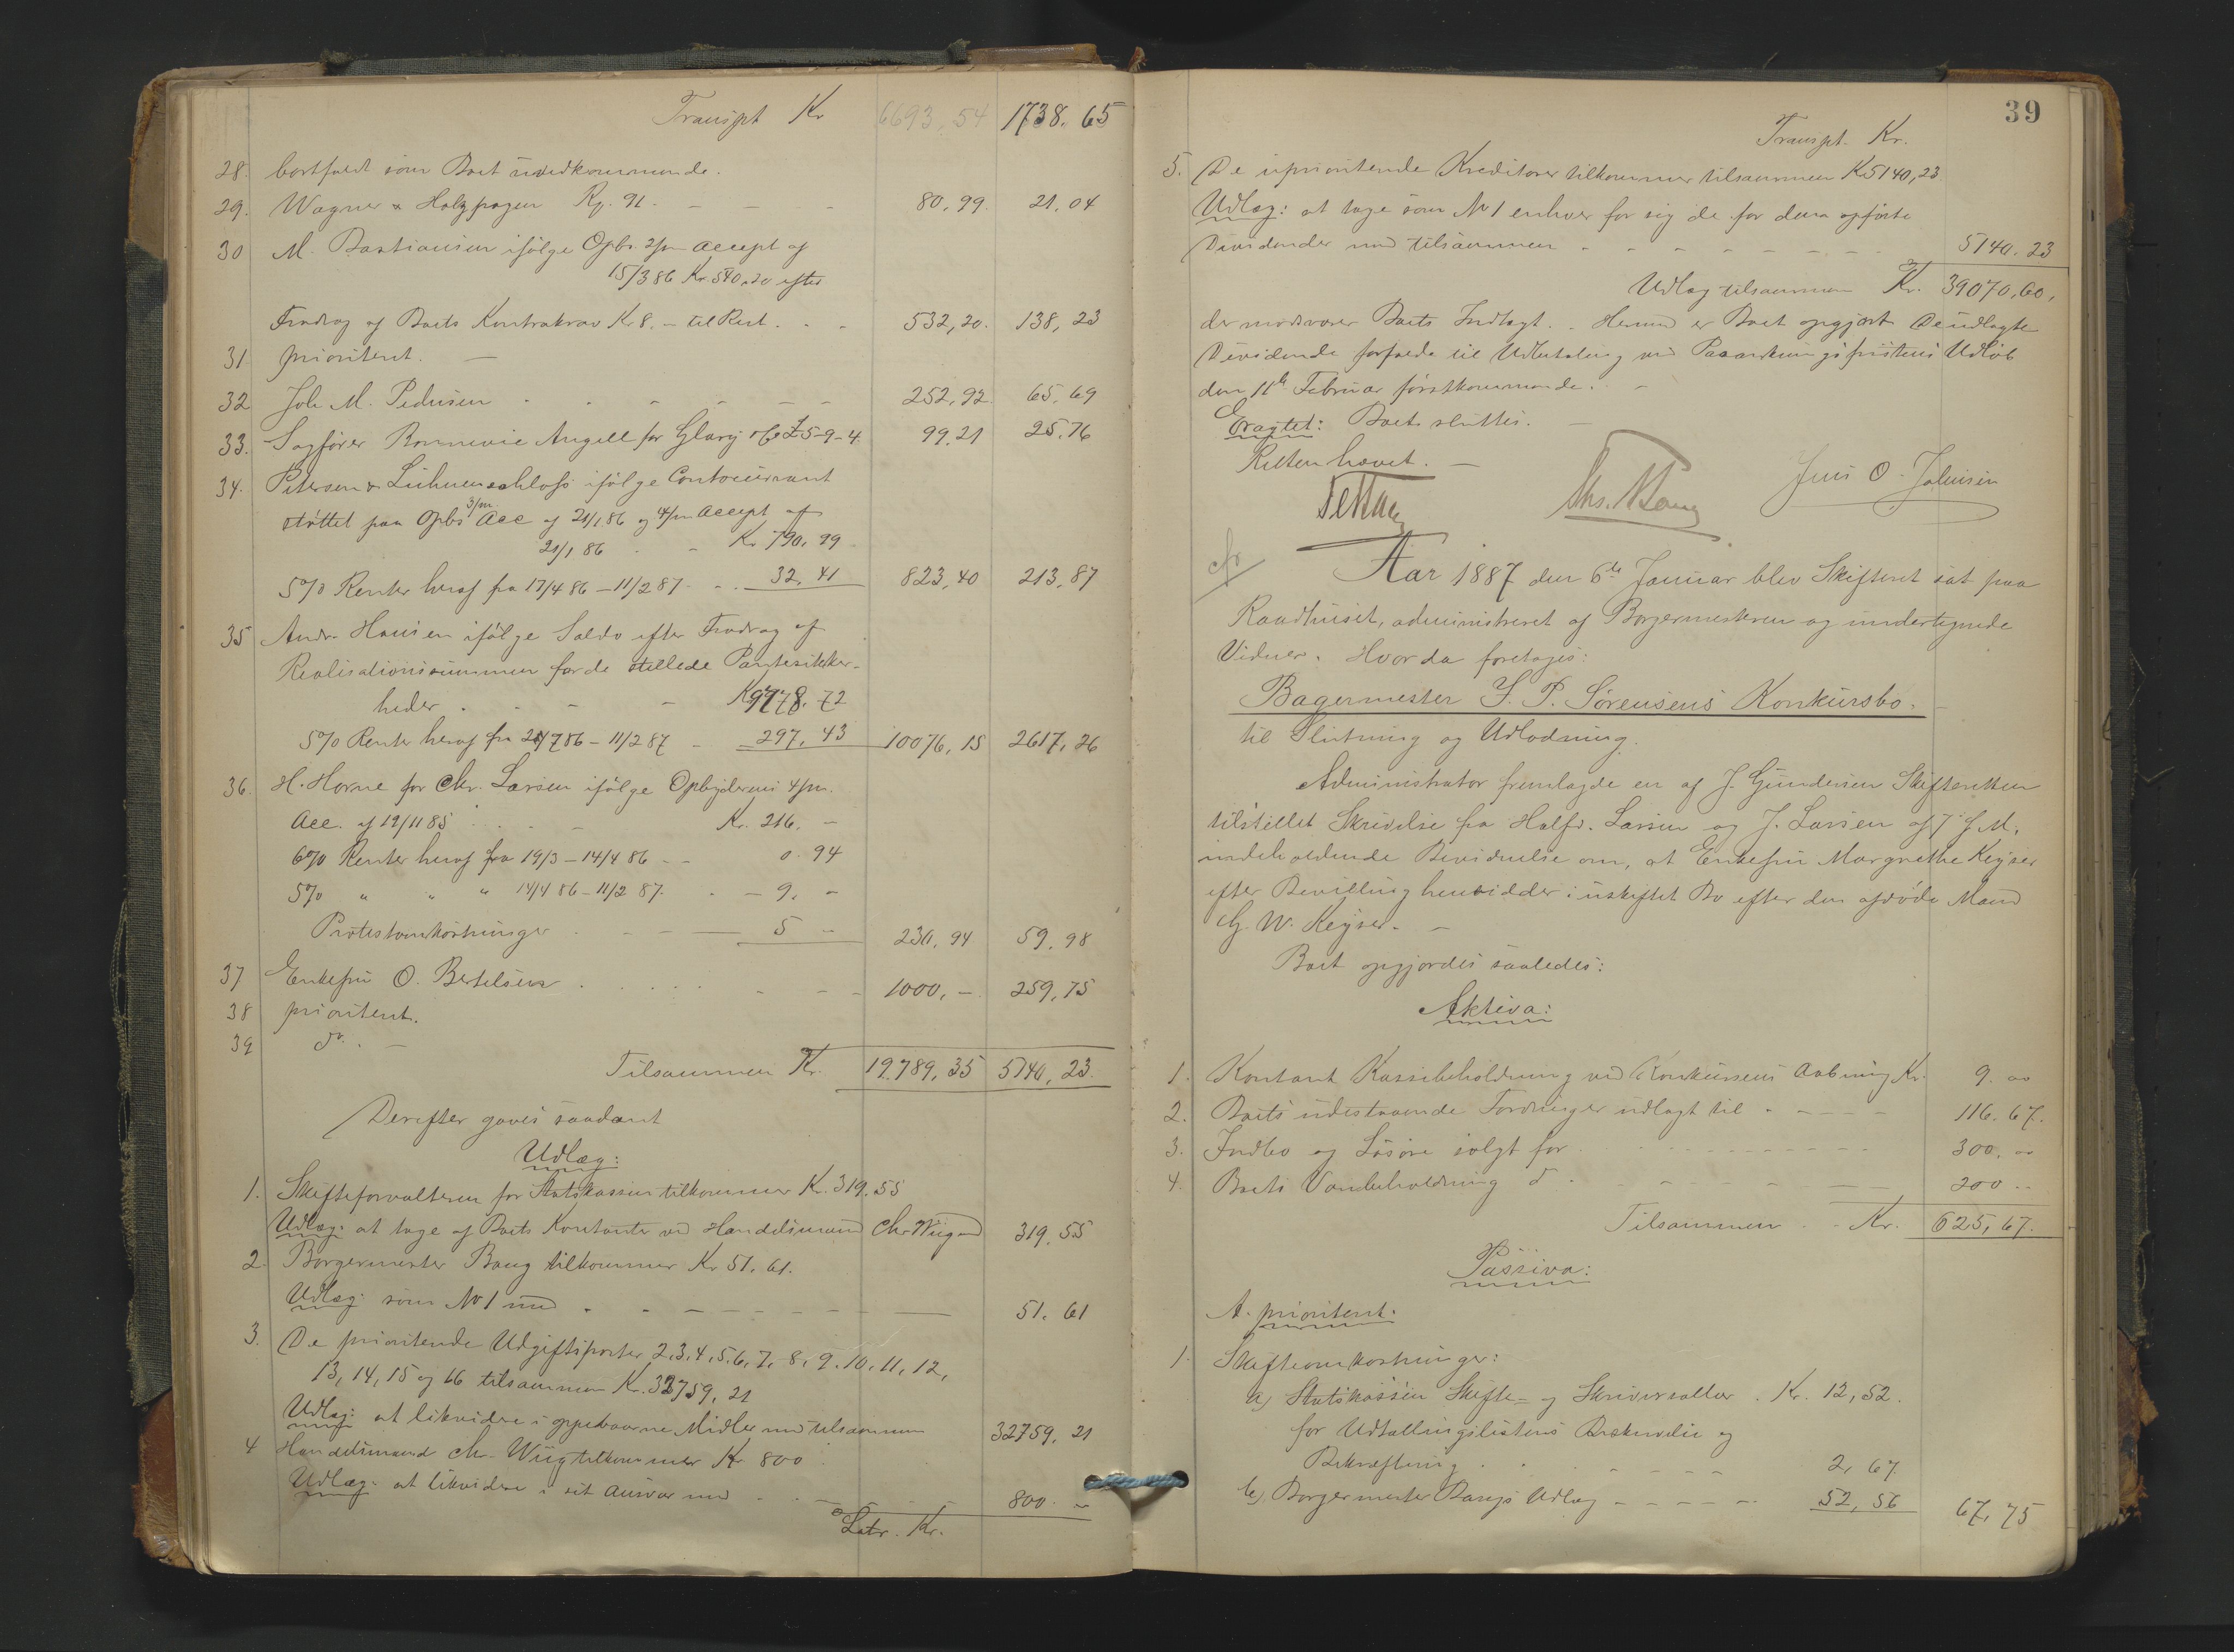 Transpt Kr 6693,54 1738.65
28. bortfaldt som Boet uvedkommende.
29. Wagner & Holzpagen Rg. 91 - - - - 80,99. 21,04
30 M. Bastiansen ifølge Opbs 2/m Accept af
15/3 86 Kr. 540,20 efter
Fradrag af Boets Kontrakrav Kr 8. - til Rest . . - 532,20. 138,23
31 prioritert. -
32 Joh. M. Pedersen - - - - - - 252,92 65,69
33. Sagfører Bonnevie Angell for Glarj £ 5-9-4 99.21 25.76
34. Petersen & Lühnenschloss ifølge Contocurrant
støttet paa Opbs 3/m Acc af 21/1 86 og 4/m Accept af
21/1 86 - - Kr. 790,99
5% Renter heraf fra 17/4 86 - 11/2 87 - . 32,41 823,40 213,87
35 Andr. Hansen ifølge Saldo efter Fradrag af
Realisationssummen for de stillede Pantesikker-
heder . - - - Kr 9778.72
5% Renter heraf fra 21/7 86 - 11/2 87 - 297,43 10076,15 2617,26
36. H. Horne for Chr. Larsen ifølge Opbyderens 4/m.
Acc. af 19/11 85 . . - - Kr. 216. -
6% Renter heraf fra 19/3 - 14/4 86 - - 0.94
5% " " " 14/4 86 - 11/2 87. . - 9. -
Protestomkostninger . - - - 5 - 230,94 59,98
37 Enkefru O. Bertelsen . . . . . - - - 1000,- 259,75
38 prioritert.
39 do. -
Tilsammen Kr. 19.789,35 5140,23.
Derefter gaves saadant
Udlæg:
1. Skifteforvalteren for Statskassen tilkommer Kr. 319.55
Udlæg: at tage af Boets Kontanter ved Handelsmand Chr Wiig med 319.55
2. Borgermester Bang tilkommer Kr 51.61.
Udlæg: som No 1 med - - - - - - - 51.61
3. De prioriterede Udgiftsposter 2,3,4,5,6,7,8,9,10,11,12,
13, 14, 15 og 16 tilsammen Kr. 32759,21
Udlæg: at likvidere i oppebaarne Midler med tilsammen 32759,21
4 Handelsmand Chr. Wiig tilkommer Kr 800
Udlæg: at likvidere i sit Ansvar med . . - - - 800. -
Latr. Kr.
39
Transpt. Kr.
5. De upriorterede Kreditorer tilkommer tilsammen Kr 5140,23
Udlæg: at tage som No 1 enhver for sig de for dem opførte
Dividender med tilsammen - - - - - - - 5140.23
Udlæg tilsammen Kr. 39070,60,
der modsvarer Boets Indtægt. - Hermed er Boet opgjort De udlagte
Dividende forfalde til Udbetaling ved Paaankningsfristens Udløb
den 11te Februar førstkommende. -
Eragtet: Boet sluttes. -
Retten hævet. -
Chr. Bang Jens O. Johnsen
cfr
Aar 1887 den 6te Januar blev Skifteret sat paa
Raadhuset, administreret af Borgermesteren og undertegnede
Vidner. Hvor da foretages:
Bagermester J. P. Sørensens Konkursbo.
til Slutning og Udlodning.
Administrator fremlagde en af J. Gundersen Skifteretten
tilstillet Skrivelse fra Halfd. Larsen og J. Larsen af 7 f. M.
indeholdende Bevidnelse om, at Enkefru Margrethe Keyser
efter Bevilling hensidder i uskiftet Bo efter den afdøde Mand
G. W. Keyser. -
Boet opgjordes saaledes:
Aktiva:
1. Kontant Kassebeholdning ved Konkursens Aabning Kr. 9.00
2. Boets udestaaende Fordringer udlagt til - - - - - 116.67.
3. Indbo og Løsøre solgt for - - - - - - - - - 300.00
4. Boets Varebeholdning do - - - - - - - 200 --
Tilsammen - . Kr. 625,67.
Passiva:
A. prioritert.
1. Skifteomkostninger:
a) Statskassen Skifte- og Skriversaller . Kr. 12,52.
for Udtællingslistens Beskrivelse og
Bekræftning . . . - - - - 2,67.
b) Borgermester Bangs Udlæg - - - - - 52,56 67,75